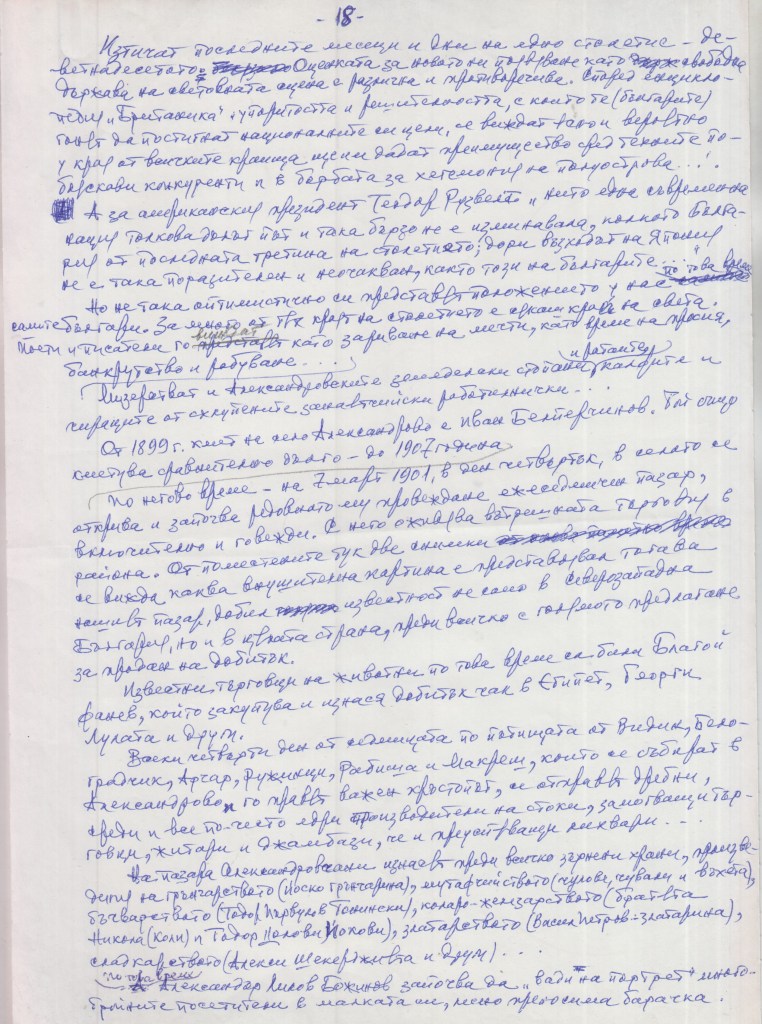 - 18 -
Изтичат последните месеци и дни на едно столетие – де-
ветнадесетото. Оценката за новото ни потвърждаване като свободна
държава на световната сцена е различна и противоречива. Според енцикло-
педия „Британика" „упоритостта и решителността, с които те (българите)
гонят да постигнат националните си цели, се виждат и вероятно
у края от всичките краища ще им дадат преимущество сред техните по-
балкански конкуренти и в борбата за хегемония на полуострова...".
А за американския президент Теодор Рузвелт „нито една съвременна
нация толкова дълъг път и така бързо не е изминавала, колкото Бълга-
рия от последната третина на столетието; дори възходът на Япония
не е така поразителен и неочакван, както този на българите....."
Но не така оптимистично си представят положението у нас по това време
самите българи. За много от тях краят на столетието е сякаш край на света.
Поети и писатели го виждат като зариване на мечти, като време на просия,
банкрутство и робуване....
Мизеруват и Александровските земеделски стопани и ратаите, и
чираците от схлупените занаятчийски работилнички...
От 1899 г. кмет на село Александрово е Иван Белперчинов. Той също
кметува сравнително дълго – до 1907 година
По негово време – на 7 март 1901, в ден четвъртък, в селото се
открива и започва редовното му провеждане ежеседмичен пазар,
включително и говежди. С него оживява вътрешната търговия в
района. От поместените тук две снимки
се вижда каква внушителна картина е представлявал тогава
нашият пазар, добил известност не само в Северозападна
България, но и в цялата страна, преди всичко с голямото предлагане
за продан на добитък.
Известни търговци на животни по това време са били Благой
Фанев, който закупува и изнася добитък чак в Египет, Георги
Лулата и други.
Всеки четвърти ден от седмицата по пътищата от Видин, Бело-
градчик, Арчар, Ружинци, Рабиша и Макреш, които се събират в
Александрово и го правят важен кръстопът, се отправят дребни,
средни и все по-често едри производители на стоки, замогващи тър-
говци, житари и джамбази, че и преуспяващи лихвари...
На пазара Александровчани изнасят преди всичко зърнени храни, произве-
дения на грънчарството (Йоско Грънчарина), мутафчийството (чулове, чували и въжета),
бъчварството (Тодор Първулов Тонински), коларо-железарството (братята
Никола (Коли) и Тодор Цолови Йокови), златарството (Васил Петров – златарина),
сладкарството (Алекси Шекерджията и други)...
По това време
Александър Лилов Божинов започва да „вади на портрет" много-
бройните посетители в малката си, лесно преносима барачка.